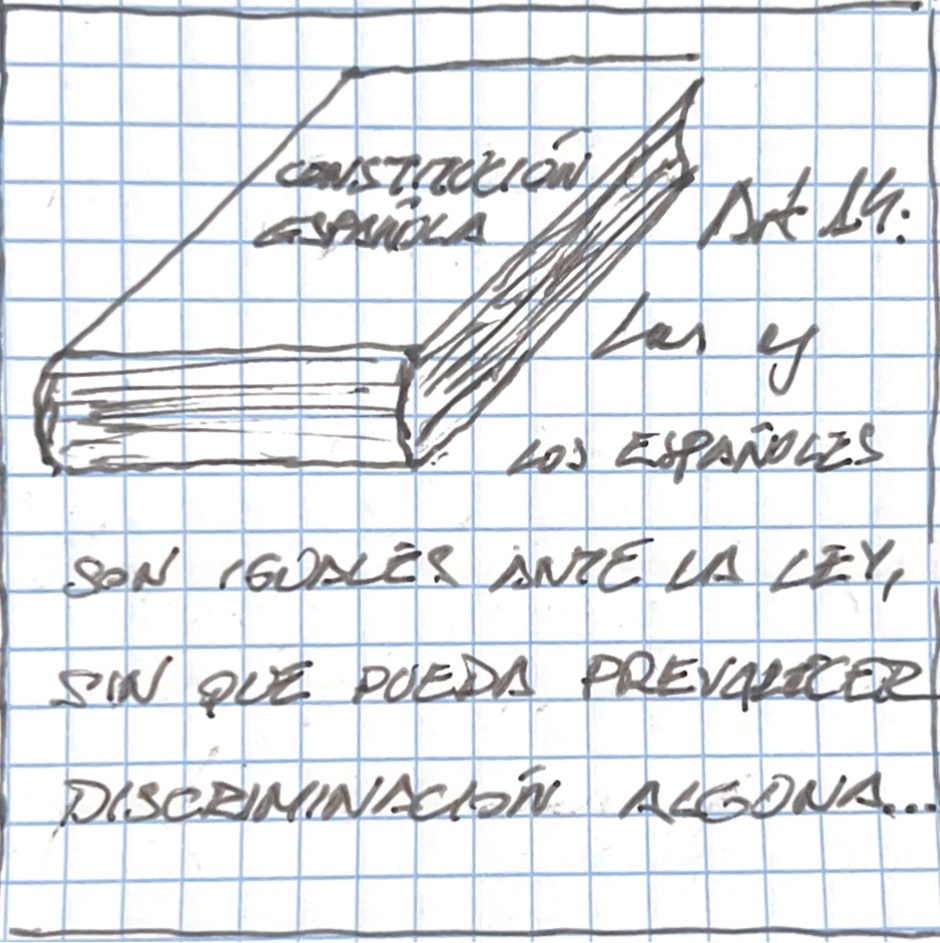 CONSTITUCIÓN
ESPAÑOLA
Art 14:
Las y
LOS ESPAÑOLES
SON IGUALES ANTE LA LEY,
SIN QUE PUEDA PREVALECER
DISCRIMINACIÓN ALGUNA...